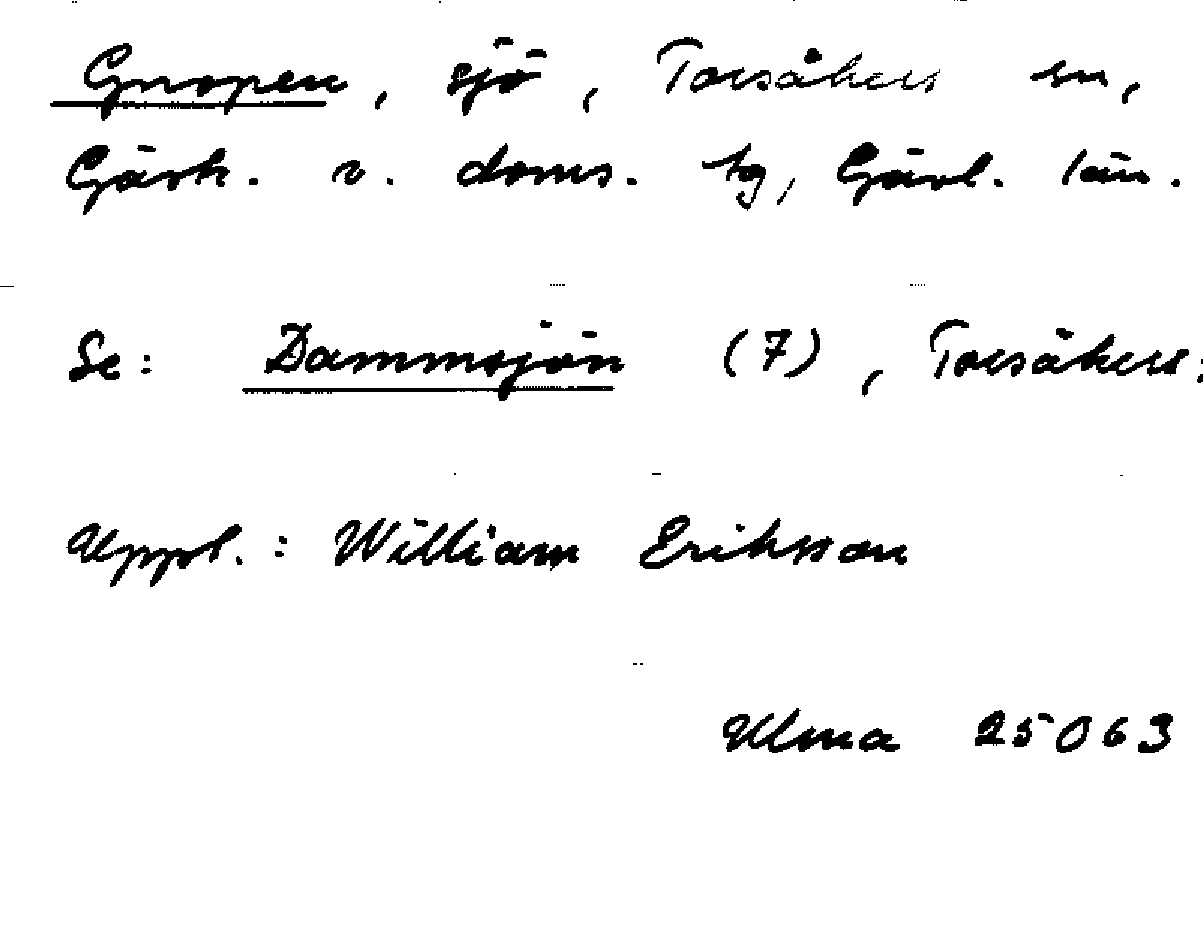 Gnopen, sjö, Torsåkers sn,
Gästr. v. doms. tg, Gävl. län.
Se: Dammsjön (7), Torsåkers:
Uppl.: William Eriksson
Ulma 25063